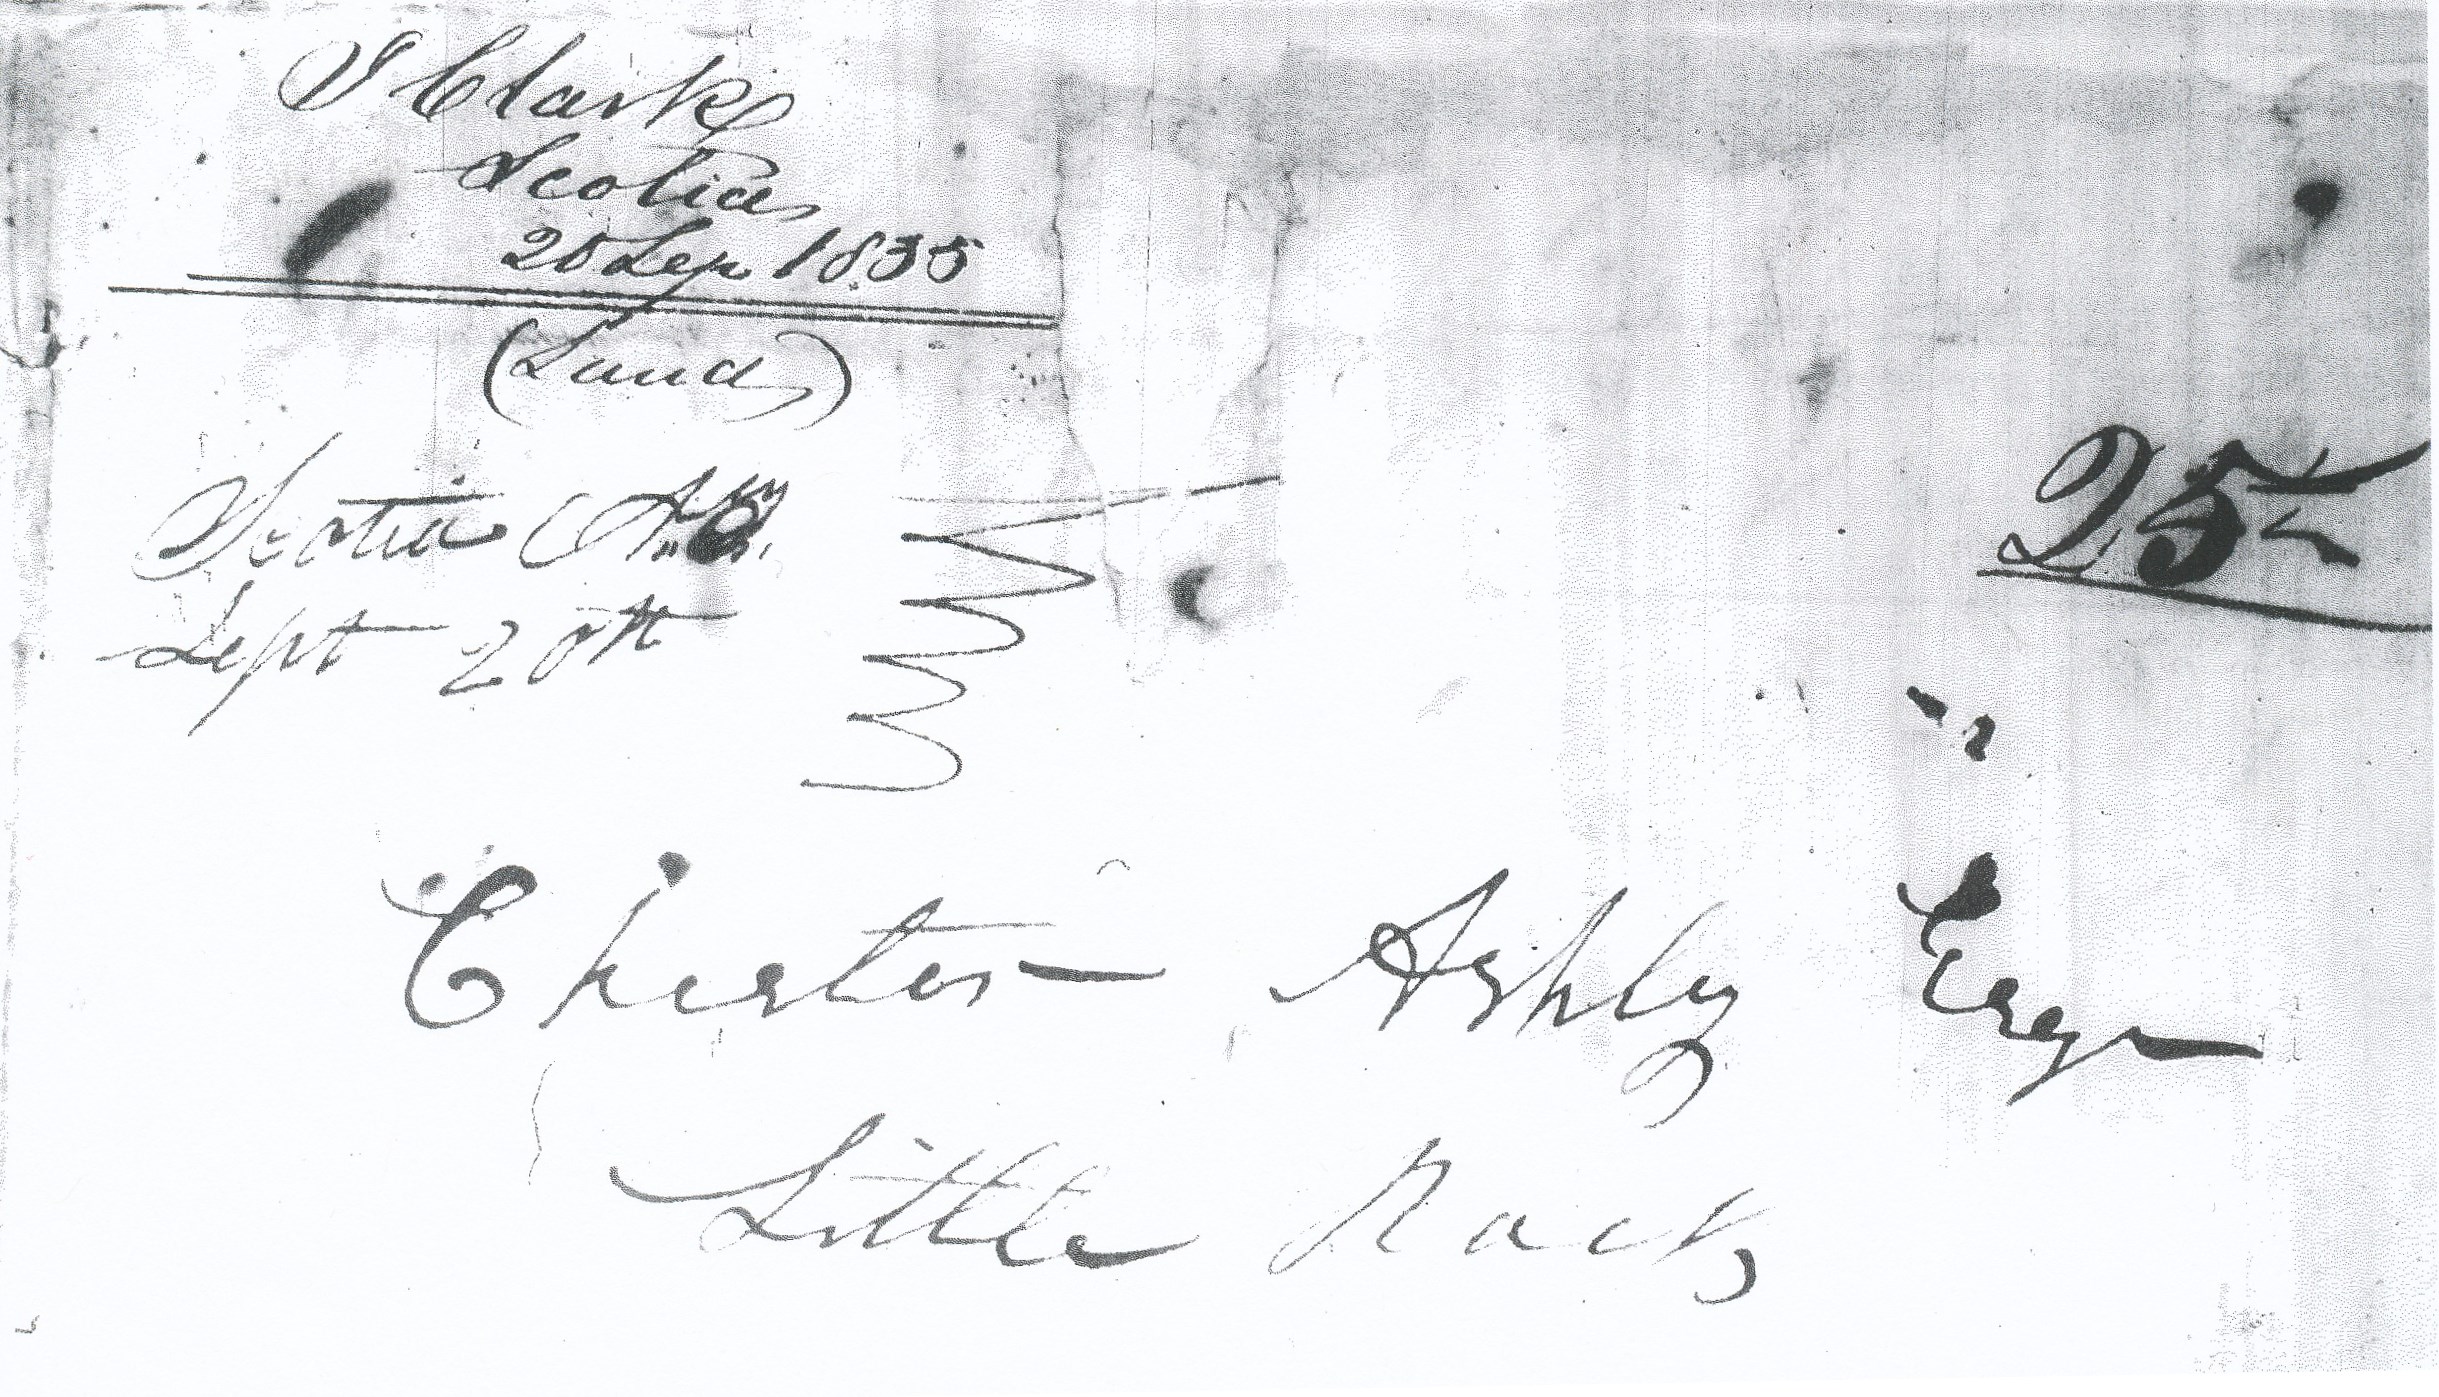 J Clark
Scotia
20 Sep 1835
(Land)
Scotia A.T.
Sept 20th
25
Chester Ashly Esqr
Little Rock